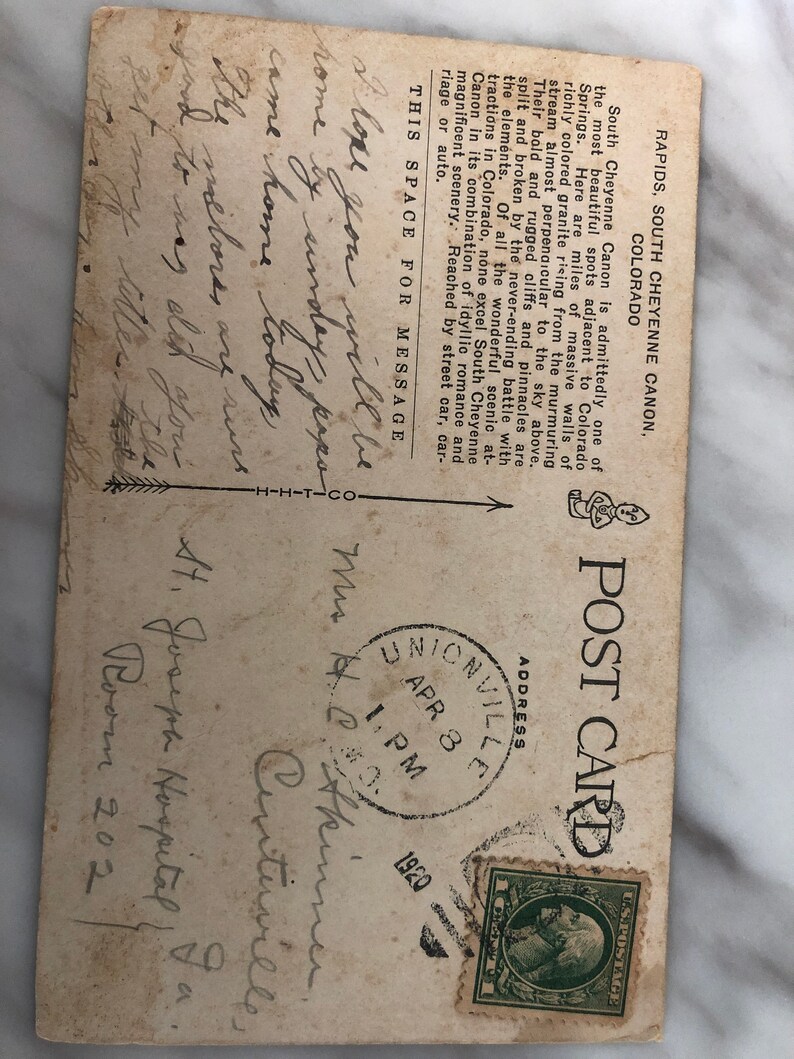 RAPIDS, SOUTH CHEYENNE CANON,
COLORADO
South Cheyenne Canon is admittedly one of
the most beautiful spots adjacent to Colorado
Springs. Here are miles of massive walls of
richly colored granite rising from the murmuring
stream almost perpendicular to the sky above.
Their bold and rugged cliffs and pinnacles are
split and broken by the never-ending battle with
the elements. Of all the wonderful scenic at-
tractions in Colorado, none excel South Cheyenne
Canon in its combination of idyllic romance and
magnificent scenery. Reached by street car, car-
riage or auto.
THIS SPACE FOR MESSAGE
I hope you will be
home by sunday, papa
came home today
The nabores are nurs
good to us, did you
get my letter the
other day.
H-H-T-CO
POST CARD
ADDRESS
UNIONVILLE
APR 8
1 PM
MO.
1920
U.S. POSTAGE
1 CENT 1
Mrs H. C. Skinner
Centerville,
St. Joseph Hospital, Ia.
Room 202